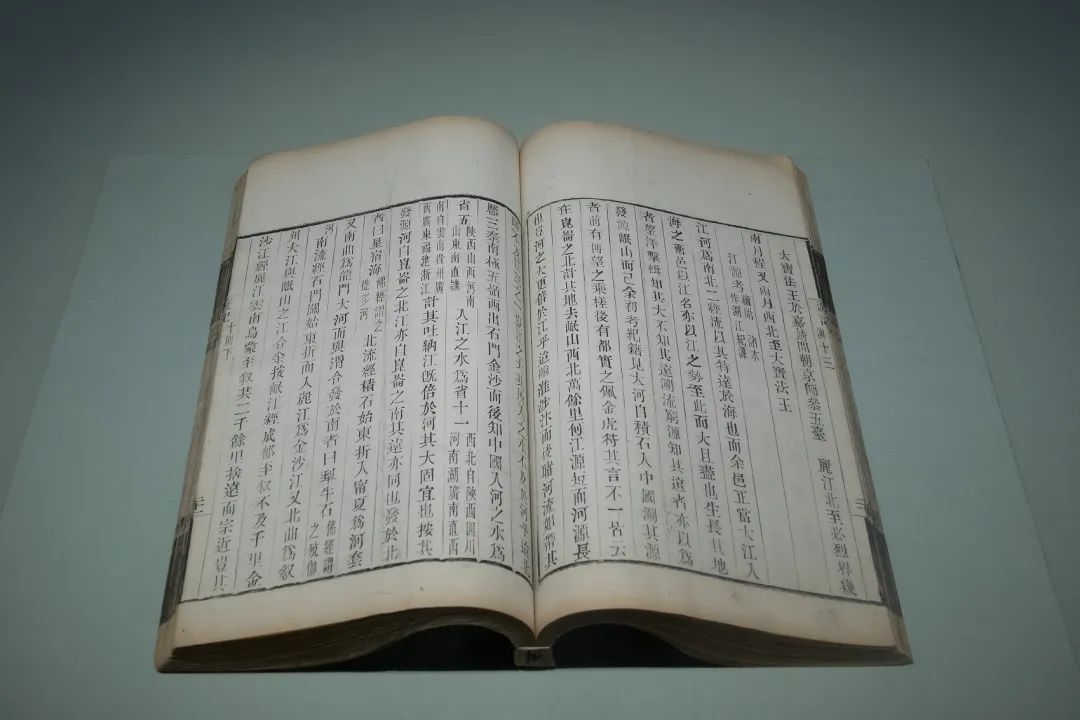 大寶法王於嘉靖間朝京師參五臺　麗江北至必烈界幾
兩月程又兩月西北至大寶法王
江源考 諸本 作溯江紀源
江河爲南北二經流以其特達於海也而余邑正當大江入
海之衝邑以江名亦以江之勢至此而大且盡也生長其地
者望洋擊楫知其大不知其遠溯流窮源知其遠者亦以爲
發源岷山而已余初考紀籍見大河自積石入中國溯其源
者前有博望之乘槎後有都實之佩金虎符其言不一皆云
在崑崙之北計其地去岷山西北萬餘里何江源短而河源長
也豈河之大更倍於江乎迨踰淮涉汴而後睹河流如帶其
歷三秦南極五嶺西出石門金沙而後知中國入河之水爲
省五 陝西山西河南山東南直隸 入江之水爲省十一 西北自陝西四川河南湖廣南直西
南自雲南貴州廣西廣東福建浙江 計其吐納江既倍於河其大固宜也按其
發源河自崑崙之北江亦自崑崙之南其遠亦同也發於北
者曰星宿海 佛經謂之徙多河 北流經積石始東折入甯夏爲河套
又南曲爲龍門大河而與渭合發於南者曰犁牛石 佛經謂之殑伽
河 南流經石門關始東折而入麗江爲金沙江又北曲爲敘
州大江與岷山之江合余按岷江經成都至敘不及千里金
沙江經麗江雲南烏蒙至敘共二千餘里捨遠而宗近豈其